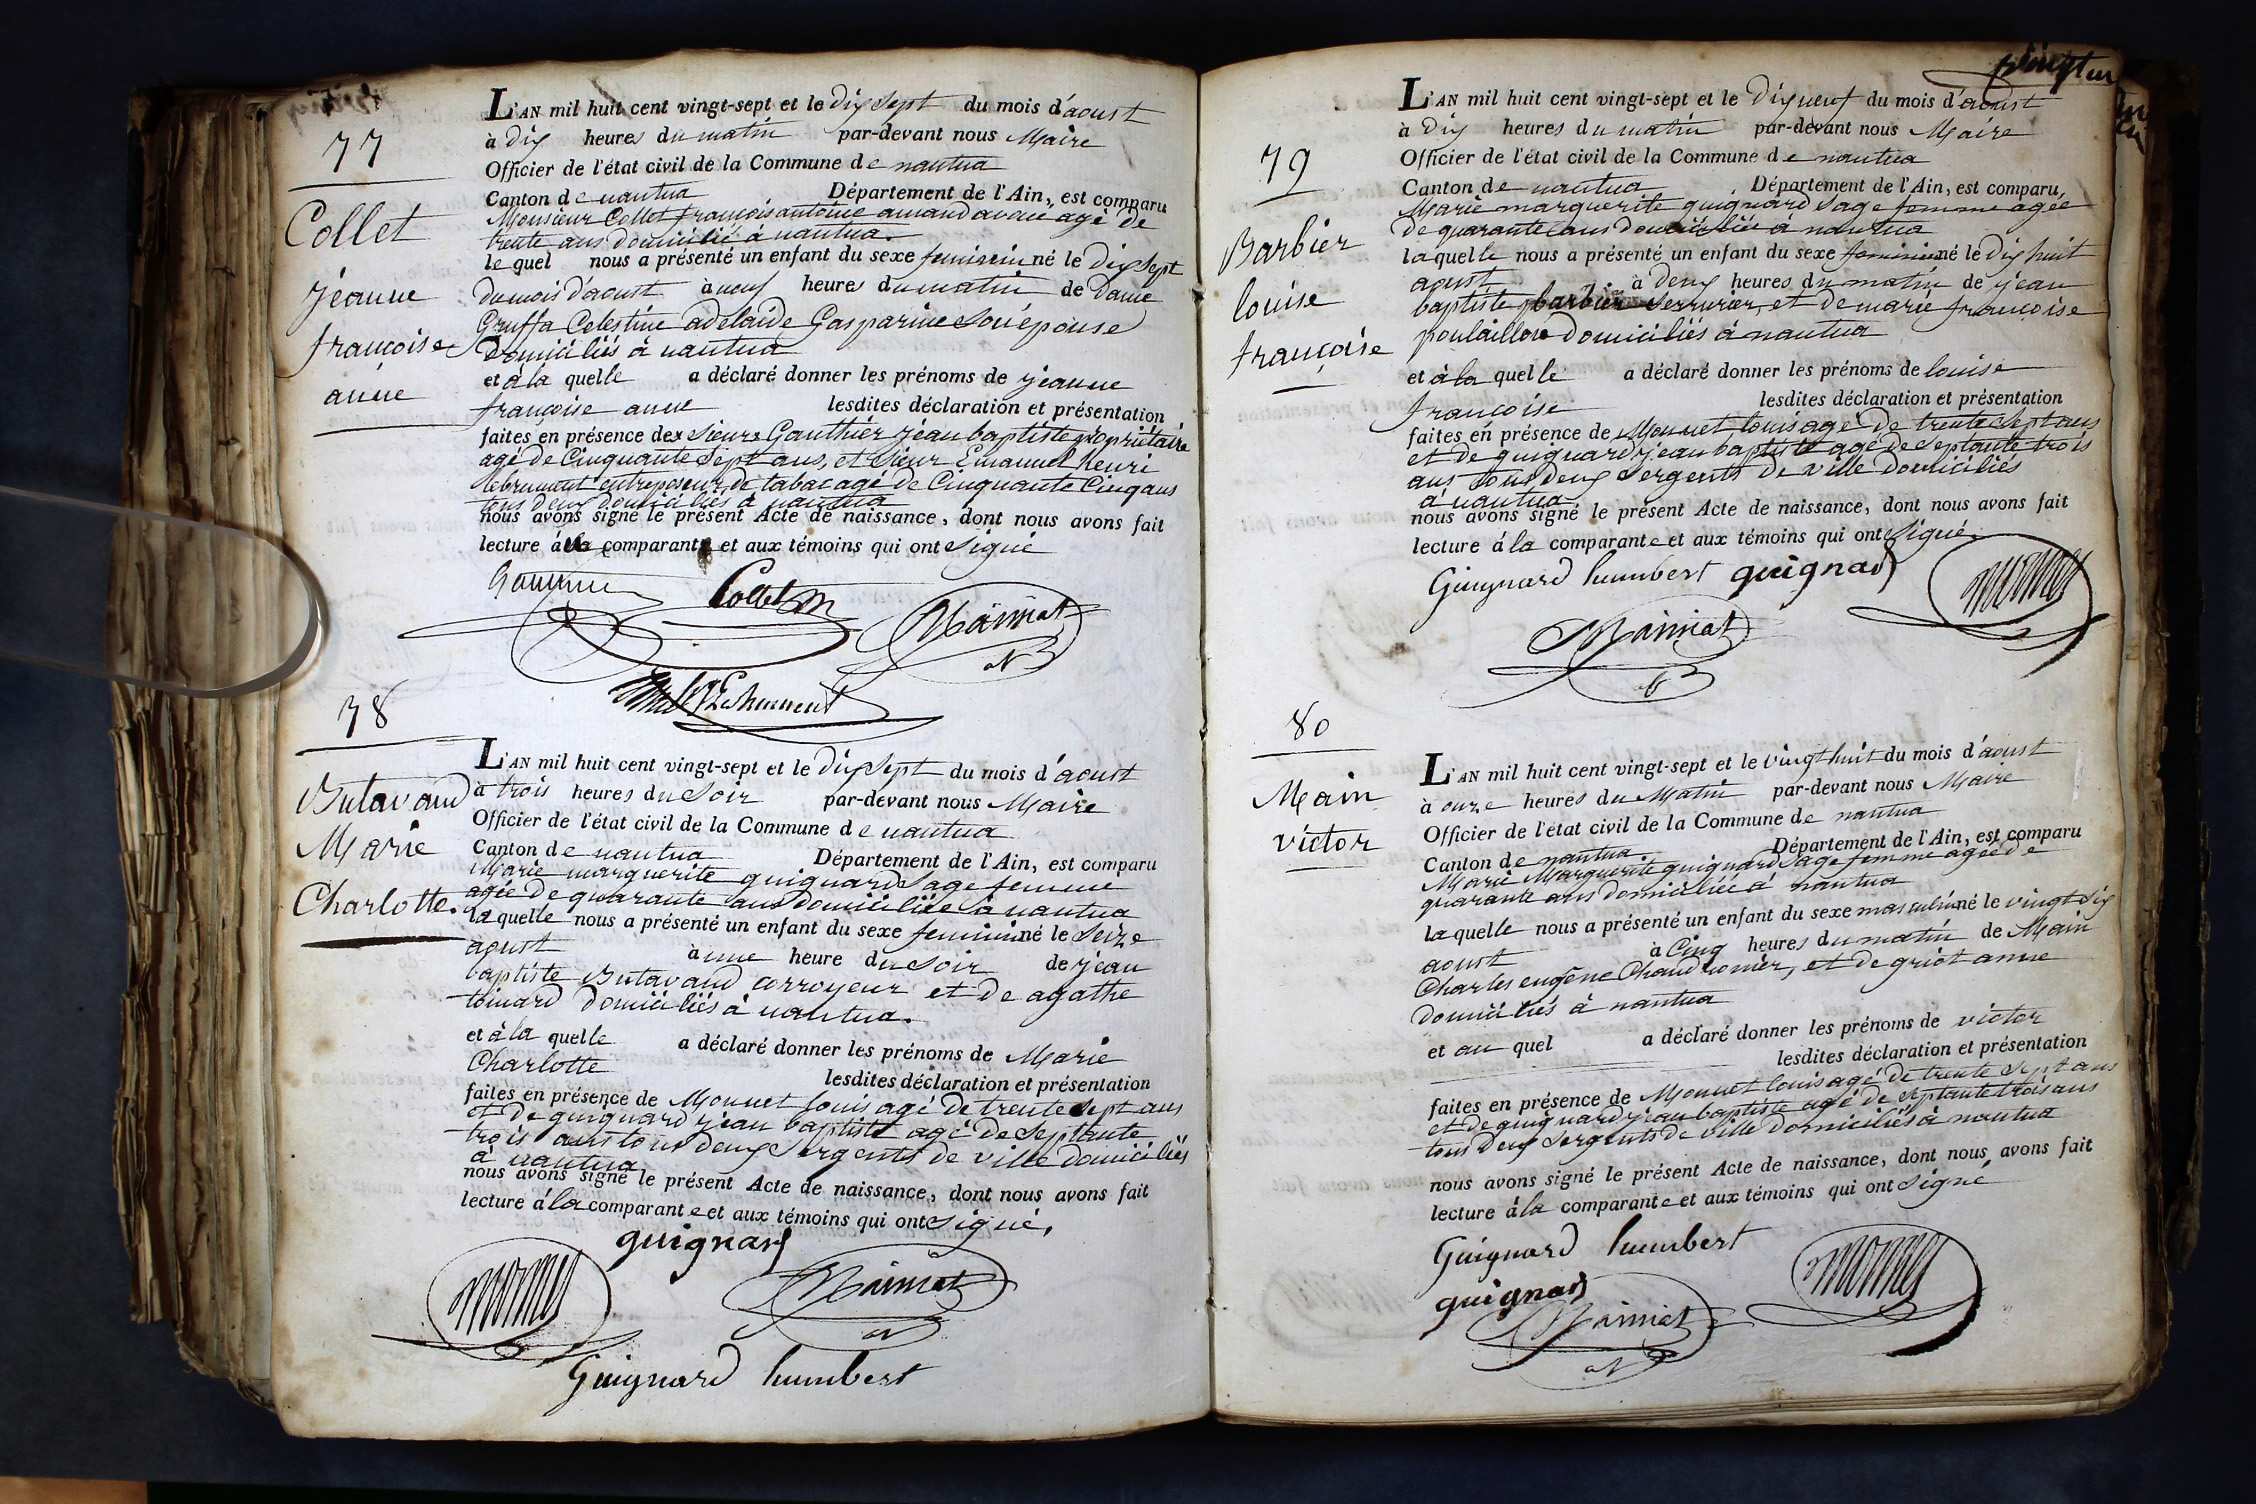 77
Collet
jéanne
françoise
anne
L'AN mil huit cent vingt-sept et le dix sept du mois d'aoust
à dix heures du matin par-devant nous Maire
Officier de l'état civil de la Commune de nantua
Canton de nantua Département de l'Ain, est comparu
Monsieur Collet françois antoine amand avoué agé de
trente ans domicilié à nantua.
le quel nous a présenté un enfant du sexe feminin né le dix sept
du mois d'aoust à neuf heures du matin de Dame
Gruffa Celestine adelaide Gasparine son épouse
Domiciliés à nantua
et à la quelle a déclaré donner les prénoms de jéanne
françoise anne lesdites déclaration et présentation
faites en présence des sieurs Gauthier jéan baptiste propriétaire
agé de Cinquante sept ans, et sieur Emanuel henri
lebrument entreposeur de tabac agé de Cinquante Cinq ans
tous deux domiciliés à nantua
nous avons signé le présent Acte de naissance, dont nous avons fait
lecture à comparant et aux témoins qui ont signé
Collet
Mainiat
78
Butavand
Marie
Charlotte.
L'AN mil huit cent vingt-sept et le dix sept du mois d'aoust
à trois heures du soir par-devant nous Maire
Officier de l'état civil de la Commune de nantua
Canton de nantua Département de l'Ain, est comparu
Marie marguerite guignard sage femme
agée de quarante ans domiciliée à nantua
la quelle nous a présenté un enfant du sexe feminin né le seize
aoust à une heure du soir de jéan
baptiste Butavand corroyeur et de agathe
toinard domiciliés à nantua.
et à la quelle a déclaré donner les prénoms de Marie
Charlotte lesdites déclaration et présentation
faites en présence de Monnet louis agé de trente sept ans
et de guignard jéan baptiste agé de septante
trois ans tous deux sergents de ville domiciliés
à nantua
nous avons signé le présent Acte de naissance, dont nous avons fait
lecture à la comparante et aux témoins qui ont signé.
guignard
monnet Mainiat
Guignard humbert
79
Barbier
louise
françoise
L'AN mil huit cent vingt-sept et le dix neuf du mois d'aoust
à dix heures du matin par-devant nous Maire
Officier de l'état civil de la Commune de nantua
Canton de nantua Département de l'Ain, est comparu,
Marie marguerite guignard sage femme agée
de quarante ans domiciliée à nantua
la quelle nous a présenté un enfant du sexe feminin né le dix huit
aoust à deux heures du matin de jéan
baptiste barbier serrurier, et de marie françoise
poulaillon domiciliés à nantua
et à la quelle a déclaré donner les prénoms de louise
françoise lesdites déclaration et présentation
faites en présence de Monnet louis agé de trente sept ans
et de guignard jéan baptiste agé de septante trois
ans tous deux sergents de ville domiciliés
à nantua
nous avons signé le présent Acte de naissance, dont nous avons fait
lecture à la comparante et aux témoins qui ont signé.
Guignard humbert guignard monnet
Mainiat
80
Main
victor
L'AN mil huit cent vingt-sept et le vingt huit du mois d'aoust
à onze heures du Matin par-devant nous Maire
Officier de l'état civil de la Commune de nantua
Canton de nantua Département de l'Ain, est comparu
Marie Marguerite guignard sage femme agée de
quarante ans domiciliée à nantua
la quelle nous a présenté un enfant du sexe masculin né le vingt six
aoust à Cinq heures du matin de Main
Charles eugène Chaudronier, et de griot anne
domiciliés à nantua
et au quel a déclaré donner les prénoms de victor
lesdites déclaration et présentation
faites en présence de Monnet louis agé de trente sept ans
et de guignard jéan baptiste agé de septante trois ans
tous deux sergents de ville domiciliés à nantua
nous avons signé le présent Acte de naissance, dont nous avons fait
lecture à la comparante et aux témoins qui ont signé
Guignard humbert
guignard monnet
Mainiat